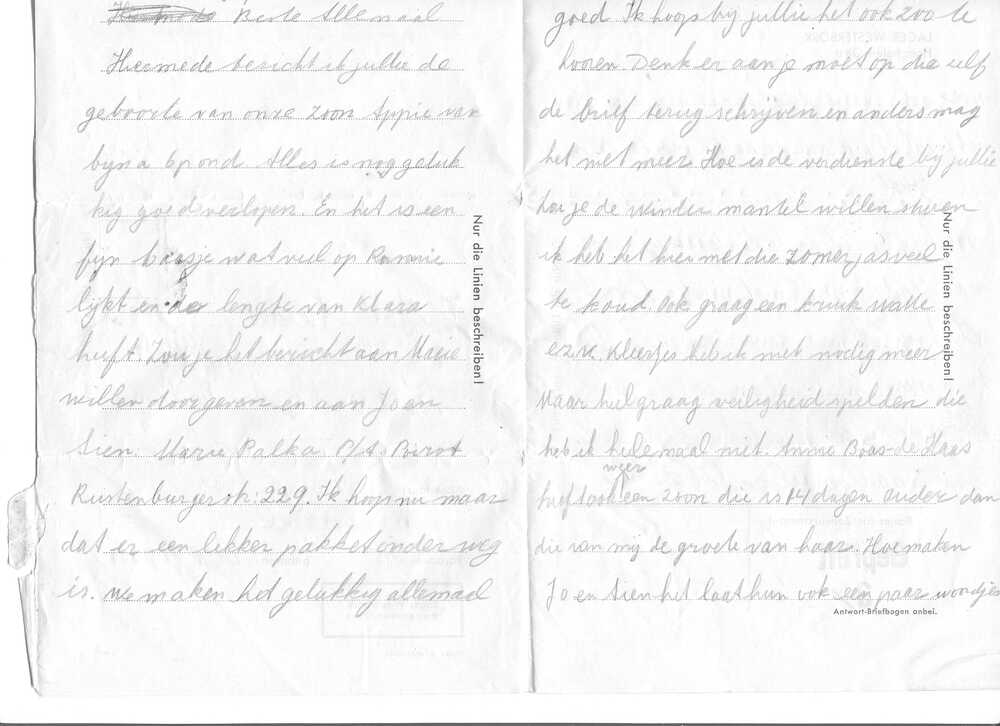 Beste Allemaal
Hiermede bericht ik jullie de
geboorte van onze zoon Appie van
bijna 6 pond. Alles is nog geluk
kig goed verlopen. En het is een
fijn baasje wat veel op Rannie
lijkt en de lengte van Klara
heeft. Zou je het bericht aan Marie
willen doorgeven en aan Jo en
Sien. Marie Palka p/a
Rustenburgerstr: 229. Ik hoop nu maar
dat er een lekker pakket onder weg
is. We maken het gelukkig allemaal
Nur die Linien beschreiben!
goed. Ik hoop bij jullie het ook zoo te
hooren. Denk er aan je moet op die zelf
de brief terug schrijven en anders mag
het niet meer. Hoe is de verdienste bij jullie
zou je de winter mantel willen sturen
ik heb het hier met die zomerjas veel
te koud. Ook graag een kruik watte
enz. Kleertjes heb ik niet nodig meer
Maar heel graag veiligheid spelden die
heb ik helemaal niet. Annie Boas-de Haas
heeft ook weer een zoon die is 14 dagen ouder dan
die van mij de groete van haar. Hoe maken
Jo en Sien het laat hun ook een paar woordjes
Nur die Linien beschreiben!
Antwort-Briefbogen anbei.